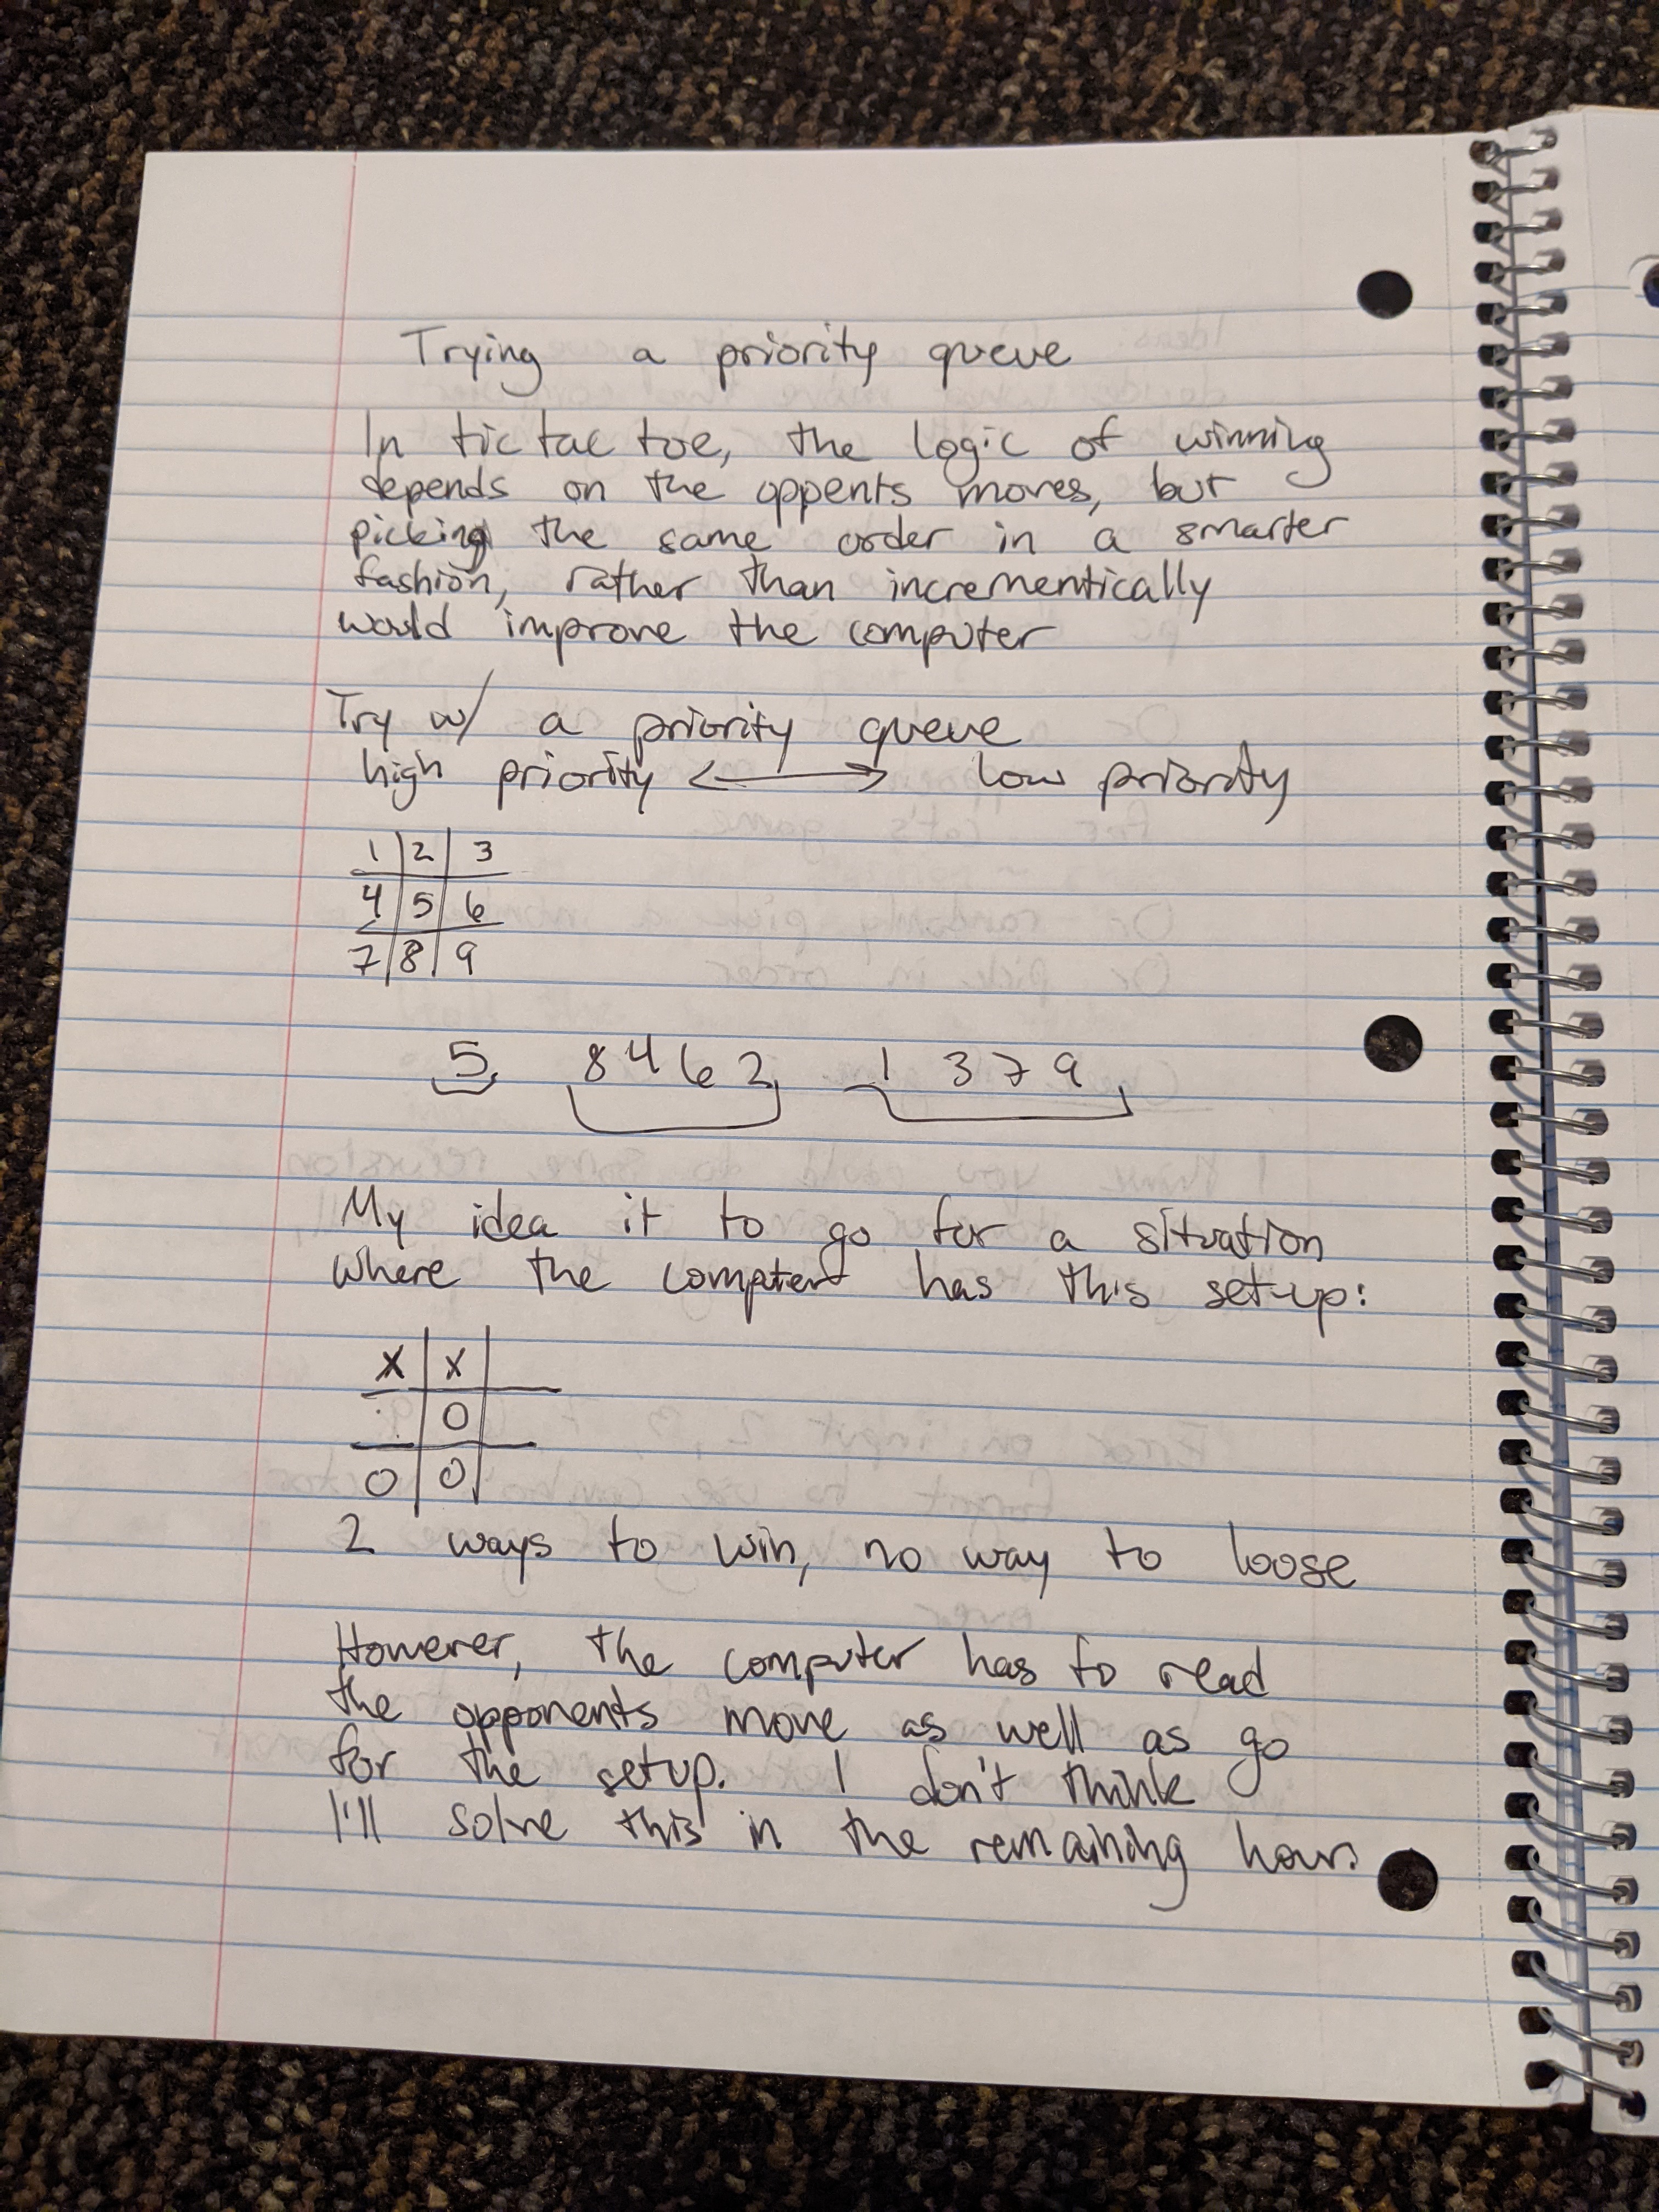 Trying a priority queue
In tic tac toe, the logic of winning
depends on the oppents moves, but
picking the same order in a smarter
fashion, rather than incrementically
would improve the computer
Try w/ a priority queue
high priority <--> low priority
1 | 2 | 3
4 | 5 | 6
7 | 8 | 9
5 8 4 6 2 1 3 7 9
My idea it to go for a situation
where the computer has this set-up:
X | X |
| O |
O | O |
2 ways to win, no way to loose
However, the computer has to read
the opponents move as well as go
for the setup. I don't think
I'll solve this in the remaining hour.